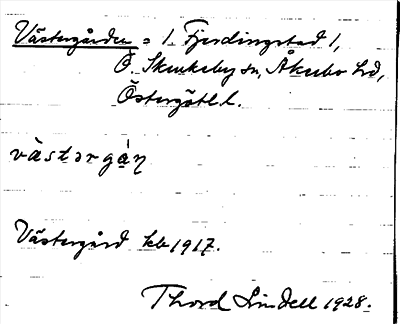 Västergården = 1 Fjerdingstad 1,
Ö. Skrukeby sn, Åkerbo hd,
Östergötl. l.
västərgá̀ɳ
Västergård kb 1917.
Thord Lindell 1928.